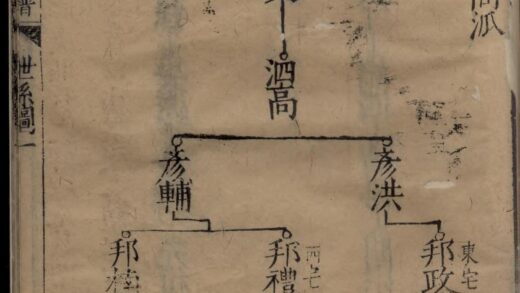 派
泗高
彥洪
彥輔
東宅
邦政
西宅
邦禮
邦
世系圖